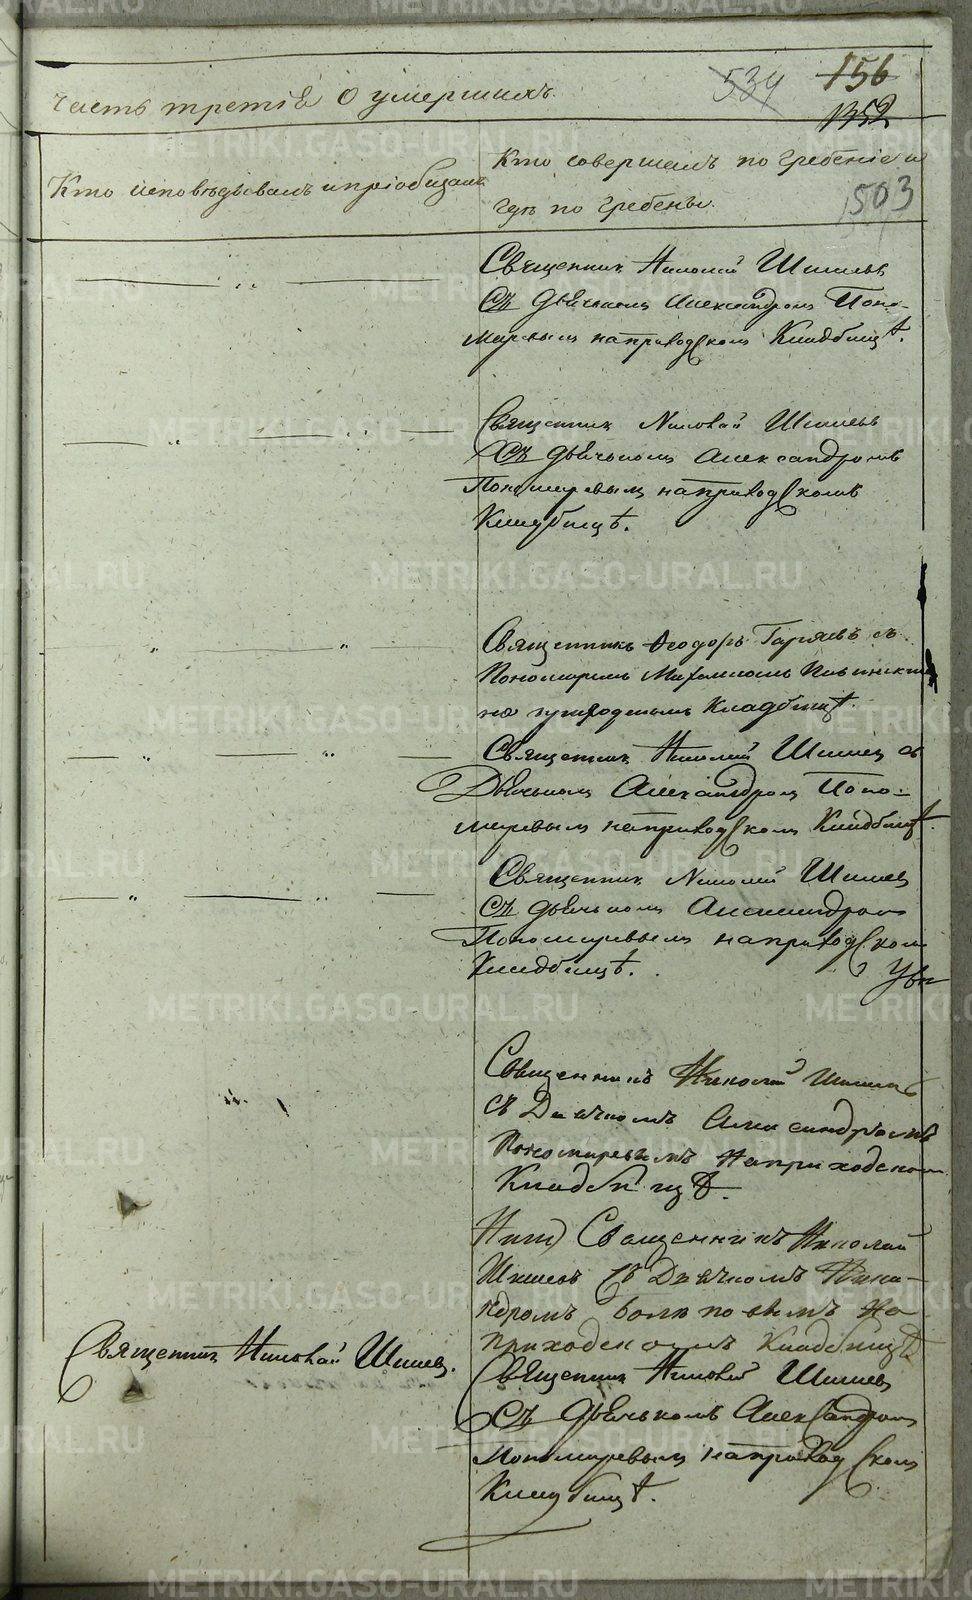 часть третія О умершихъ
534 156
1352
Кто исповѣдывалъ и пріобщалъ
Кто совершалъ по гребеніе и
гдѣ по гребены.
503
Священник Николай Шишев
Съ дьячьком Александром Поно-
маревым на приходском Кладбищѣ.
Священник Николай Шишевъ
Съ дьячьком Александромъ
Пономаревым на приходскомъ
Кладбищѣ.
Священникъ Ѳеодоръ Гаряевъ съ
Пономаремъ
на приходскомъ Кладбищѣ.
Священник Николай Шишев съ
Дьячьком Александром Поно-
маревым на приходском Кладбищѣ.
Священник Николай Шишев
Съ дьячьком Александром
Пономаревым на приходском
Кладбищѣ.
Священникъ Николай Шишевъ
съ Дьячкомъ Александромъ
Пономаревымъ На приходском
Кладбищѣ.
Священникъ Николай
Шишевъ Съ Дьячкомъ Ника-
ндромъ На
приходскомъ Кладбищѣ
Священник Николай Шишев.
Священник Николай Шишев
Съ дьячькомъ Александром
Пономаревым на приходском
Кладбищѣ.
METRIKI.GASO-URAL.RU